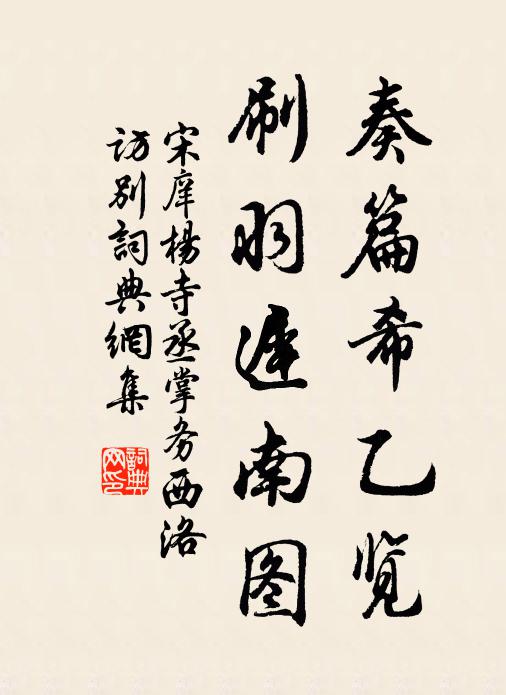 奏篇希乙览
刷羽迟南图
宋庠杨寺丞掌务西洛
访别词典網集
词典
网印